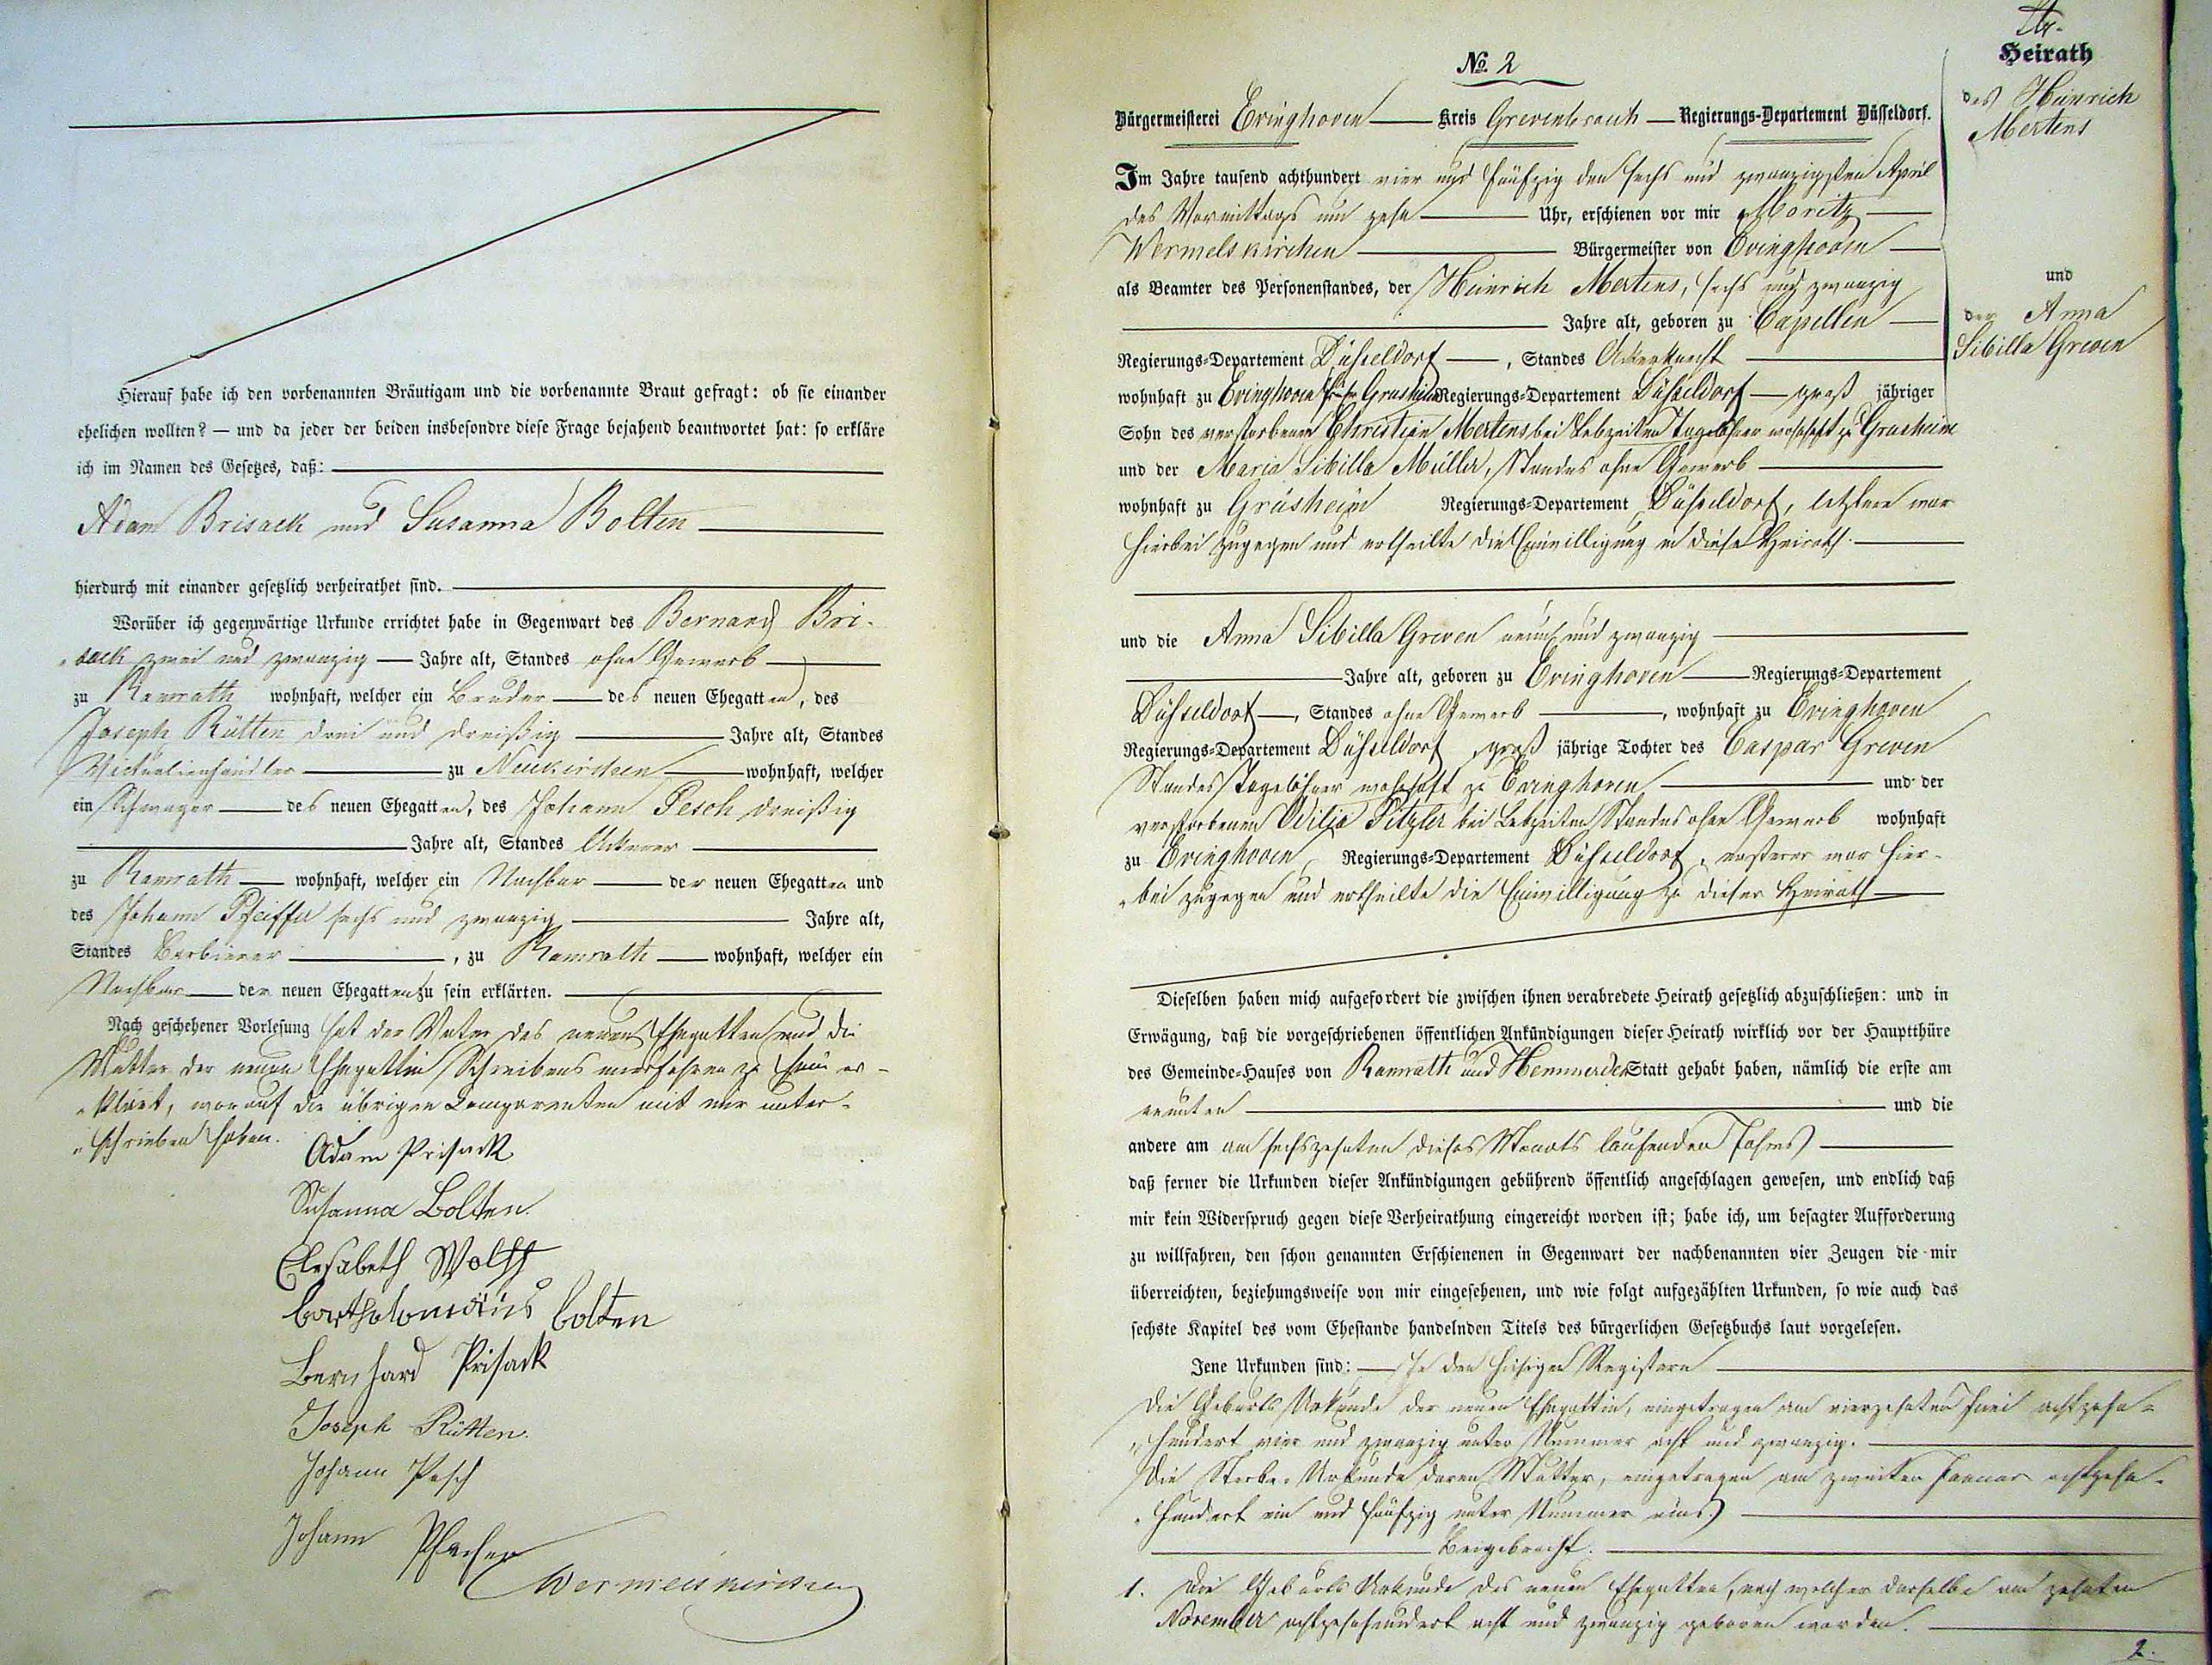 Hierauf habe ich den vorbenannten Bräutigam und die vorbenannte Braut gefragt: ob sie einander
ehelichen wollten? — und da jeder der beiden insbesondre diese Frage bejahend beantwortet hat: so erkläre
ich im Namen des Gesetzes, daß:
Adam Brisack und Susanna Bolten
hierdurch mit einander gesetzlich verheirathet sind.
Worüber ich gegenwärtige Urkunde errichtet habe in Gegenwart des Bernard Bri-
sack zwei und zwanzig — Jahre alt, Standes ohne Gewerb
zu Ramrath wohnhaft, welcher ein Bruder — des neuen Ehegatten, des
Joseph Rütten drei und dreißig — Jahre alt, Standes
Victualienhändler — zu Neukirchen — wohnhaft, welcher
ein Schwager — des neuen Ehegatten, des Johann Pesch dreißig
Jahre alt, Standes Ackerer
zu Ramrath — wohnhaft, welcher ein Nachbar — der neuen Ehegatten und
des Johann Pfeiffer sechs und zwanzig — Jahre alt,
Standes Barbierer —, zu Ramrath — wohnhaft, welcher ein
Nachbar — der neuen Ehegatten zu sein erklärten.
Nach geschehener Vorlesung hat der Vater des neuen Ehegatten und die
Mutter der neuen Ehegattin Schreibens unerfahren zu sein er-
klärt, worauf die übrigen Comparenten mit mir unter-
schrieben haben.
Adam Prisack
Susanna Bolten
Elesabeth Wolff
Bartholomäus Bolten
Bernhard Prisack
Joseph Rütten.
Johann Pesch
Johann
Wermelskirchen
No. 2
Bürgermeisterei Evinghoven — Kreis Grevenbroich — Regierungs-Departement Düsseldorf.
Im Jahre tausend achthundert vier und fünfzig den sechs und zwanzigsten April
des Vormittags um zehn — Uhr, erschienen vor mir Moritz
Wermelskirchen — Bürgermeister von Evinghoven
als Beamter des Personenstandes, der Heinrich Mertens, sechs und zwanzig
Jahre alt, geboren zu Capellen
Regierungs-Departement Düsseldorf —, Standes Ackerknecht
wohnhaft zu Evinghoven früher Grusheim Regierungs-Departement Düsseldorf — groß jähriger
Sohn des verstorbenen Christian Mertens bei Lebzeiten Tagelöhner wohnhaft zu Grusheim
und der Maria Sibilla Müller, Standes ohne Gewerb
wohnhaft zu Grusheim Regierungs-Departement Düsseldorf, letztere war
hierbei zugegen und ertheilte die Einwilligung in diese Heirath.
und die Anna Sibilla Greven neun und zwanzig
Jahre alt, geboren zu Evinghoven — Regierungs-Departement
Düsseldorf —, Standes ohne Gewerb —, wohnhaft zu Evinghoven
Regierungs-Departement Düsseldorf, groß jährige Tochter des Caspar Greven
Standes Tagelöhner wohnhaft zu Evinghoven — und der
verstorbenen Odilia Pitzler bei Lebzeiten Standes ohne Gewerb wohnhaft
zu Evinghoven, Regierungs-Departement Düsseldorf, ersterer war hier-
bei zugegen und ertheilte die Einwilligung zu dieser Heirath
Dieselben haben mich aufgefordert die zwischen ihnen verabredete Heirath gesetzlich abzuschließen: und in
Erwägung, daß die vorgeschriebenen öffentlichen Ankündigungen dieser Heirath wirklich vor der Hauptthüre
des Gemeinde-Hauses von Ramrath und Hemmerden Statt gehabt haben, nämlich die erste am
neunten — und die
andere am am sechszehnten dieses Monats laufenden Jahres
daß ferner die Urkunden dieser Ankündigungen gebührend öffentlich angeschlagen gewesen, und endlich daß
mir kein Widerspruch gegen diese Verheirathung eingereicht worden ist; habe ich, um besagter Aufforderung
zu willfahren, den schon genannten Erschienenen in Gegenwart der nachbenannten vier Zeugen die mir
überreichten, beziehungsweise von mir eingesehenen, und wie folgt aufgezählten Urkunden, so wie auch das
sechste Kapitel des vom Ehestande handelnden Titels des bürgerlichen Gesetzbuchs laut vorgelesen.
Jene Urkunden sind: — In den hiesigen Registern
Die Geburts Urkunde der neuen Ehegattin, eingetragen am vierzehnten Juni achtzehn-
hundert vier und zwanzig unter Nummer acht und zwanzig.
Die Sterbe-Urkunde deren Mutter, eingetragen am zweiten Januar achtzehn-
hundert ein und fünfzig unter Nummer eins.
Beigebracht.
1. Die Geburts Urkunde des neuen Ehegatten, nach welcher derselbe am zehnten
November achtzehnhundert acht und zwanzig geboren worden.
2.
Heirath
des Heinrich
Mertens
und
der Anna
Sibilla Greven